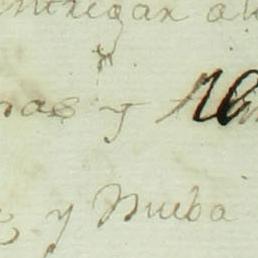 entregar al
nas y
y Nueba